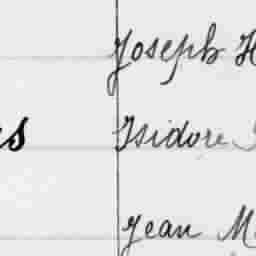 Joseph H
es Isidore
Jean M